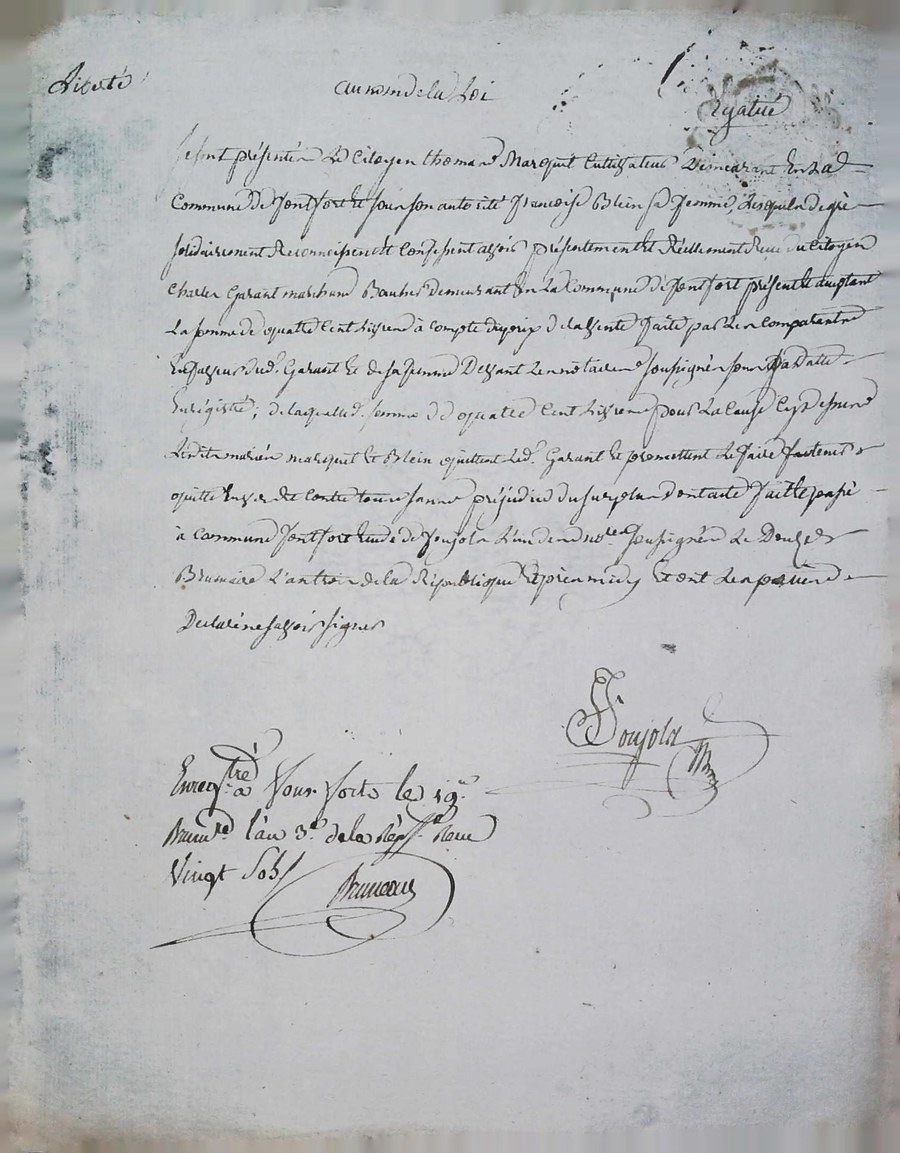 Liberté
au nom de la Loi
Egalité
se sont présentés Le Citoyen thomas Marquet Cultivateur Demeurant En La
Commune de Jontfort et sous son autorité françoise Blein sa femme, Lesquels de gré
solidairement Reconnoissent et Confessent avoir présentement Et Réellement Reçu du Citoyen
Charles Garant marchand Demeurant En La Commune de Jontfort présent et acceptant
La somme de quatre Cent Livres à compte du prix de la vente faite par Les Comparantes
En faveur dud. Garant Et de sa femme Devant Les notaires soussignés sous Sa Datte
Enrégistré; de laquelle somme de quatre Cent Livres pour La Cause Cy dessus
Lesdits mariés marquet Et Blein quittent Led. Garant Et promettent Le faire tenir
quitte Envers Et Contre tous sans préjudice du surplus dont acte fait Et passé
à Commune Jontfort Etude de Soujols L'un des nores. soussignés Le Douze
Brumaire L'an trois de la République Et ont Les parties
Declaré ne savoir signer
Soujols
Enregtré. à le 19.
Brumre l'an 3e. de la Rép. Reçu
Vingt Sols
Bruneau